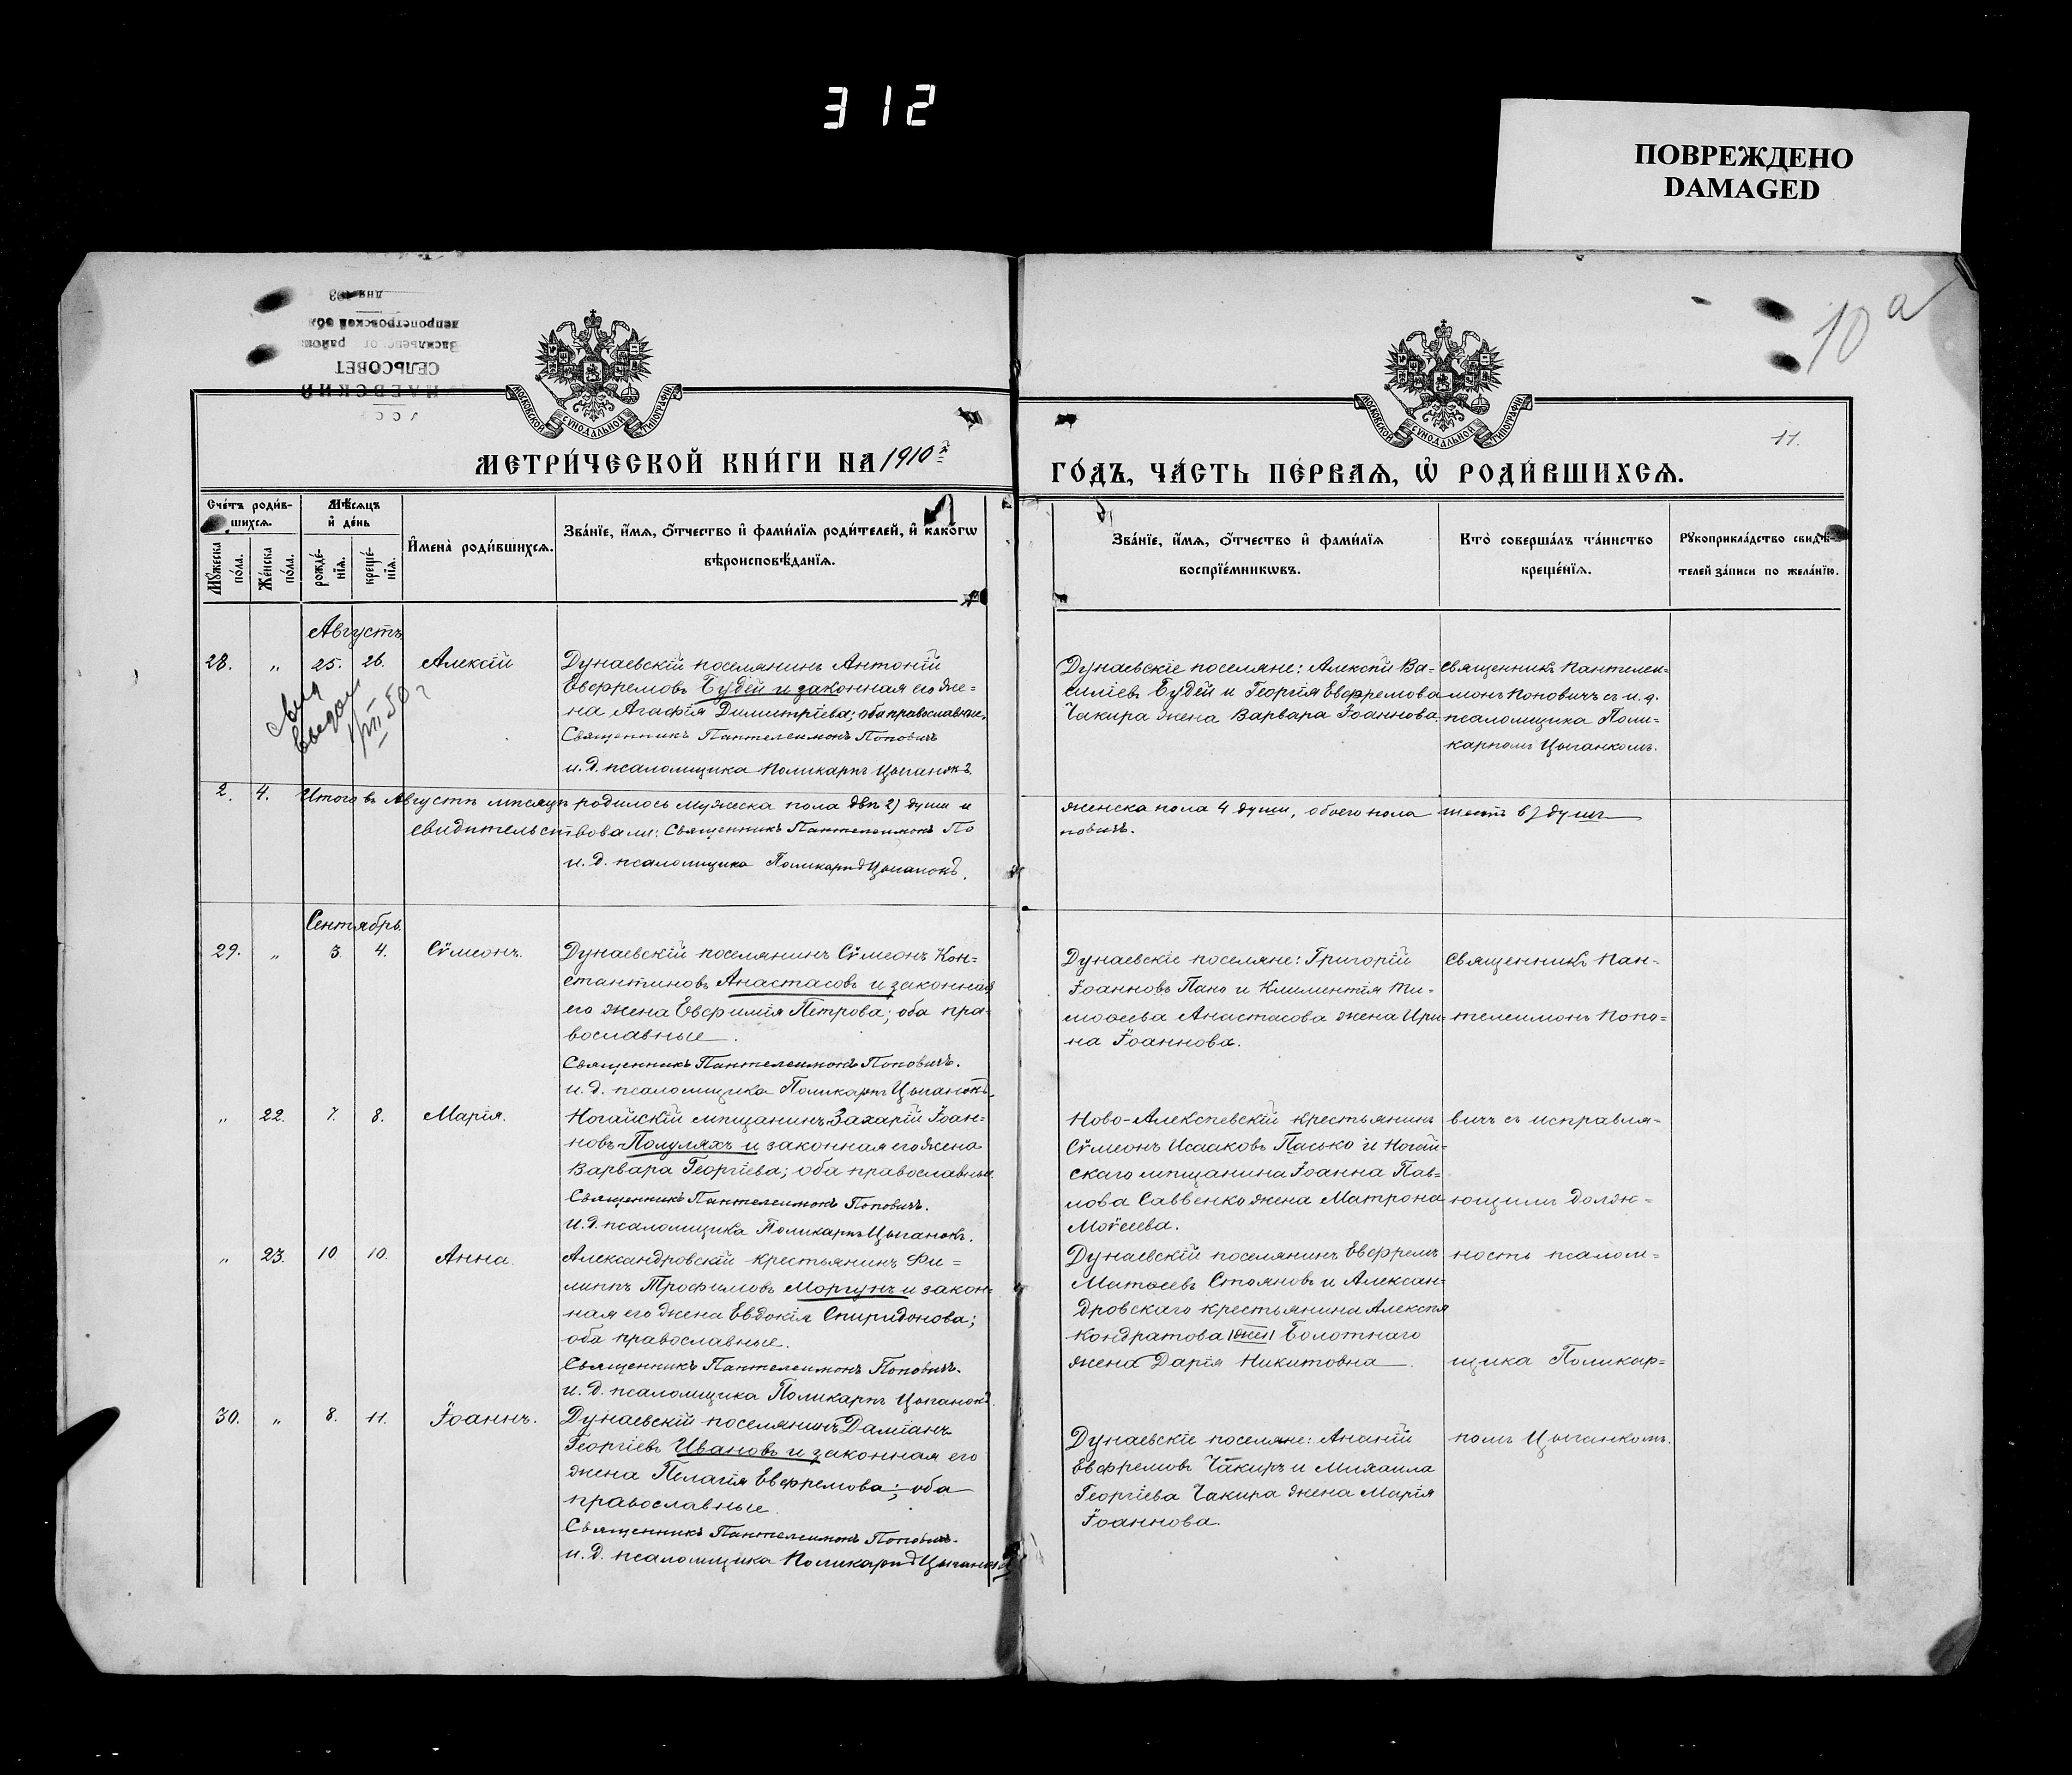 312
ПОВРЕЖДЕНО
DAMAGED
10 а
СЕЛЬСОВЕТ
МОСКОВСКОЙ СУНОДАЛЬНОЙ ТИПОГРАФІИ
МОСКОВСКОЙ СУНОДАЛЬНОЙ ТИПОГРАФІИ
11.
МЕТРИ́ЧЕСКОЙ КНИ́ГИ НА 1910й
ГО́ДЪ, ЧА́СТЬ ПЕ́РВАѦ, Ѡ҆ РОДИ́ВШИХСѦ.
Сче́тъ роди́в-
шихсѧ.
Мѣ́сѧцъ
и҆ де́нь
Мꙋ́жеска по́ла.
Же́нска по́ла.
рожде́-
нїѧ.
креще́-
нїѧ.
И҆мена̀ роди́вшихсѧ.
Зва́нїе, и҆́мѧ, ѻ҆́тчество и҆ фами́лїѧ роди́телей, и҆ како́гѡ
вѣроисповѣ́данїѧ.
Зва́нїе, и҆́мѧ, ѻ҆́тчество и҆ фами́лїѧ
воспрїе́мникѡвъ.
Кто̀ соверша́лъ та́инство
креще́нїѧ.
Рꙋкоприкла́дство свидѣ́-
телей за́писи по жела́нїю.
Августъ
28. „ 25. 26. Алексій
Дунаевскій поселянинъ Антоній
Евфремовъ Будей и законная его же-
на Агафія Димитріева; оба православные.
Священникъ Пантелеимонъ Поповичъ
и. д. псаломщика Поликарпъ Цыганокъ.
Дунаевскіе поселяне: Алексѣй Ва-
силіевъ Будей и Георгія Евфремова
Чакира жена Варвара Іоаннова.
Священникъ Пантелеи-
монъ Поповичъ съ и. д.
псаломщика Поли-
карпомъ Цыганкомъ.
2. 4. Итого въ Августѣ мѣсяцѣ родилось мужеска пола двѣ 2) души и
женска пола 4 души, обоего пола шесть 6) душъ
свидѣтельствовали: Священникъ Пантелеимонъ По
повичъ.
и. д. псаломщика Поликарпъ Цыганокъ.
Сентябрь.
29. „ 3. 4. Сѵмеонъ.
Дунаевскій поселянинъ Сѵмеонъ Кон-
стантиновъ Анастасовъ и законная
его жена Евфимія Петрова; оба пра-
вославные.
Священникъ Пантелеимонъ Поповичъ.
и. д. псаломщика Поликарпъ Цыганокъ.
Дунаевскіе поселяне: Григорій
Іоанновъ Пано и Климентія Ти-
моѳеева Анастасова жена Ири-
на Іоаннова.
Священникъ Пан-
телеимонъ Попо-
„ 22. 7. 8. Марія.
Ногайскій мѣщанинъ Захарій Іоан-
новъ Полуляхъ и законная его жена
Варвара Георгіева; оба православные.
Священникъ Пантелеимонъ Поповичъ.
и. д. псаломщика Поликарпъ Цыганокъ.
Ново-Алексѣевскій крестьянинъ
Сѵмеонъ Исааковъ Пасько и Ногай-
скаго мѣщанина Іоанна Пав-
лова Саввенко жена Матрона
Моѵсеева.
вичъ съ исправля-
ющимъ долж-
„ 23. 10 10. Анна.
Александровскій крестьянинъ Фи-
липпъ Трофимовъ Моргунъ и закон-
ная его жена Евдокія Спиридонова;
оба православные.
Священникъ Пантелеимонъ Поповичъ.
и. д. псаломщика Поликарпъ Цыганокъ.
Дунаевскій поселянинъ Евфремъ
Матѳеевъ Стояновъ и Алексан-
дровскаго крестьянина Алексѣя
Кондратова Болотнаго
жена Дарія Никитовна.
ность псалом-
щика Поликар-
30. „ 8. 11. Іоаннъ.
Дунаевскій поселянинъ Даміанъ
Георгіевъ Ивановъ и законная его
жена Пелагія Евфремова; оба
православные.
Священникъ Пантелеимонъ Поповичъ.
и. д. псаломщика Поликарпъ Цыганокъ
Дунаевскіе поселяне: Ананій
Евфремовъ Чакиръ и Михаила
Георгіева Чакира жена Марія
Іоаннова.
помъ Цыганкомъ.